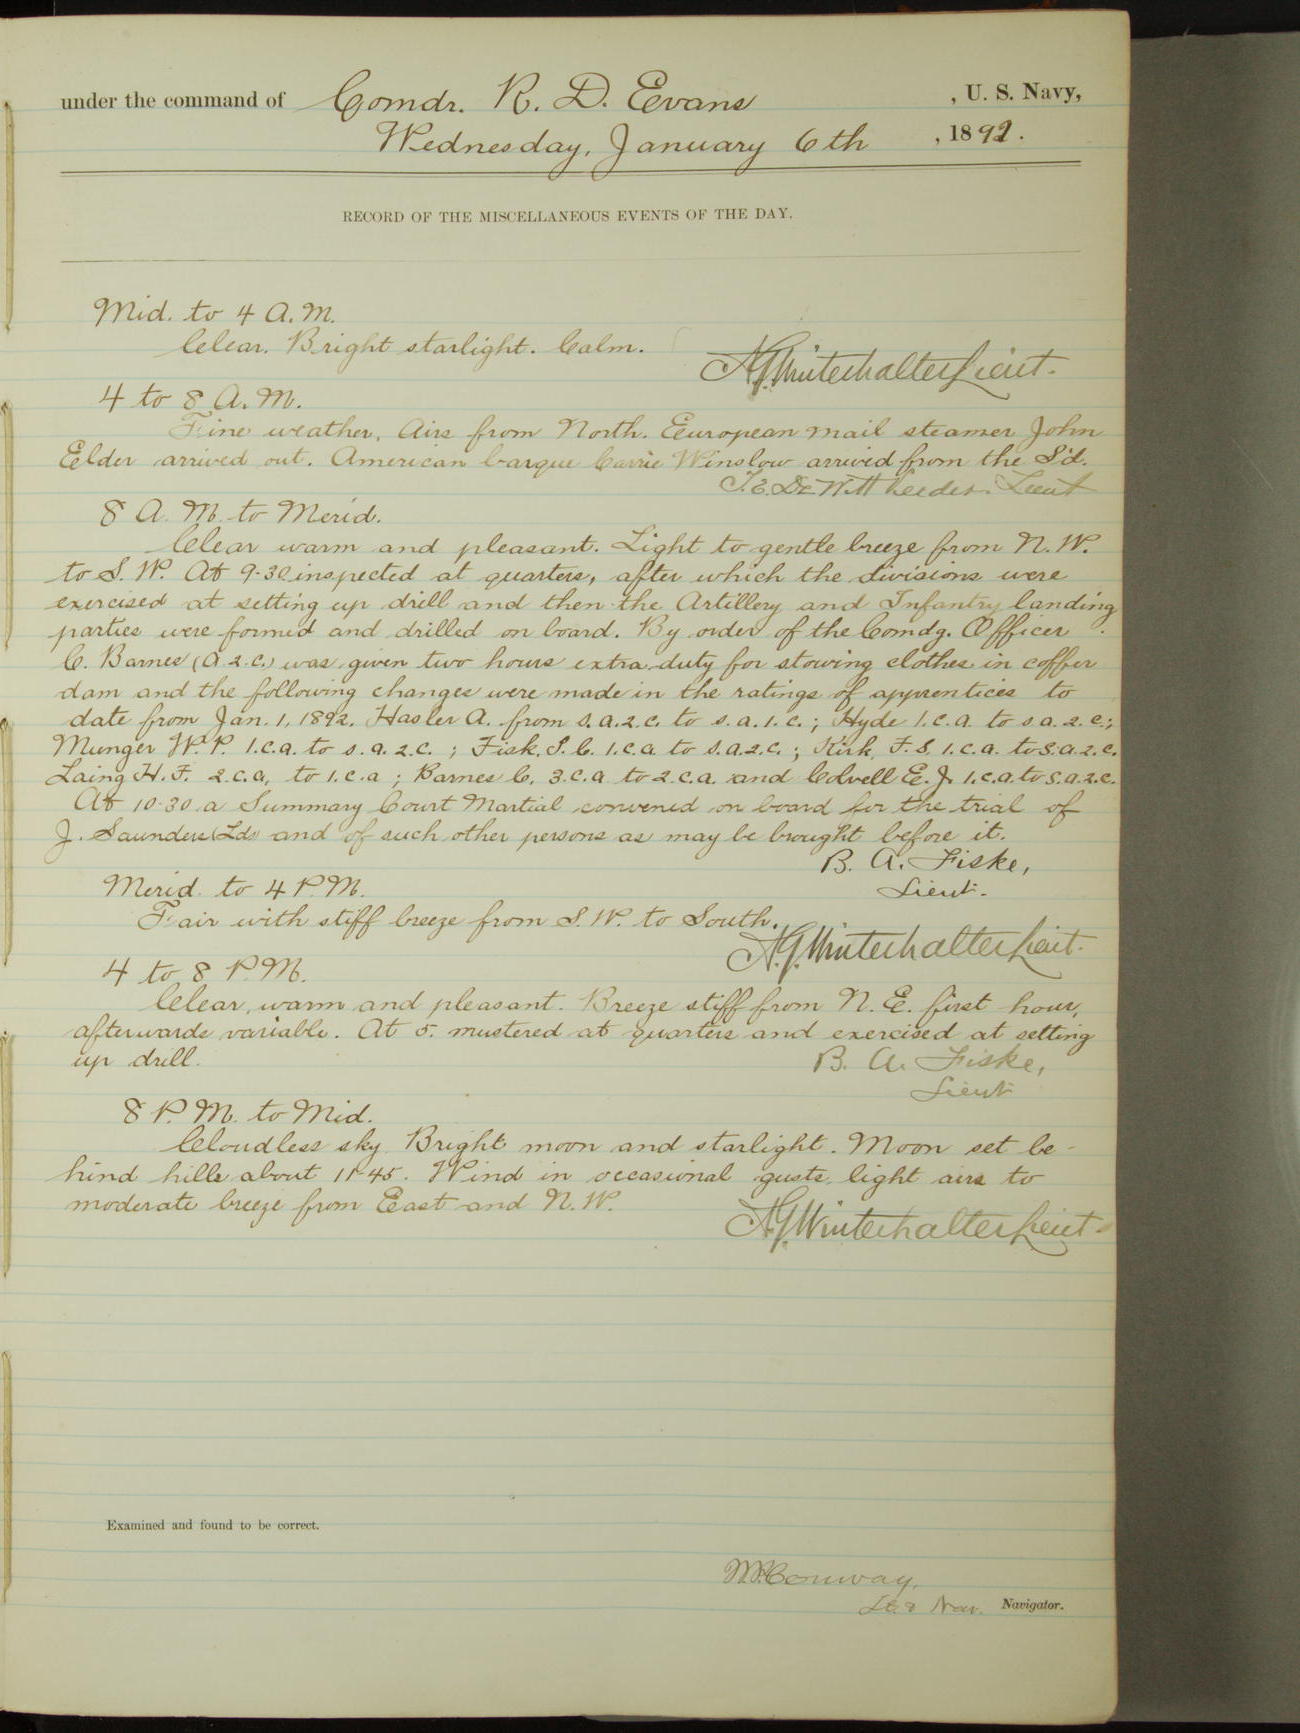 under the command of Comdr. R. D. Evans , U. S. Navy,
Wednesday, January 6th , 1892.
RECORD OF THE MISCELLANEOUS EVENTS OF THE DAY.
Mid. to 4 A.M.
Clear. Bright starlight. Calm.
A.G. Winterhalter Lieut.
4 to 8 A.M.
Fine weather, Airs from North. European mail steamer John
Elder arrived out. American barque Carrie Winslow arrived from the S'd.
T.E. DeWitt Veeder. Lieut
8 A.M. to Merid.
Clear warm and pleasant. Light to gentle breeze from N.W.
to S.W. At 9-30 inspected at quarters, after which the divisions were
exercised at setting up drill and then the Artillery and Infantry landing
parties were formed and drilled on board. By order of the Comdg. Officer
C. Barnes (A.2.C.) was given two hours extra duty for stowing clothes in coffer
dam and the following changes were made in the ratings of apprentices to
date from Jan. 1, 1892. Hasler A. from s.a.2.c. to s.a.1.c.; Hyde 1.c.a. to s.a.2.c.;
Munger W.P. 1.c.a. to s.a.2.c.; Fisk, S.C. 1.c.a to s.a.2.c.; Kirk, F.S. 1.c.a. to s.a.2.c.
Laing H.F. 2.c.a, to 1.c.a; Barnes C. 3.c.a to 2.c.a. and Colvell E.J. 1.c.a. to s.a.2.c.
At 10-30 a Summary Court Martial convened on board for the trial of
J. Saunders (Lds) and of such other persons as may be brought before it.
B. A. Fiske,
Lieut.
Merid. to 4 P.M.
Fair with stiff breeze from S.W. to South.
A.G. Winterhalter Lieut.
4 to 8 P.M.
Clear, warm and pleasant. Breeze stiff from N.E. first hour,
afterwards variable. At 5. mustered at quarters and exercised at setting
up drill.
B. A. Fiske,
Lieut
8 P.M. to Mid.
Cloudless sky Bright moon and starlight. Moon set be-
hind hills about 11-45. Wind in occasional gusts, light airs to
moderate breeze from East and N.W.
A.G. Winterhalter Lieut.
Examined and found to be correct.
Conway,
Navigator.